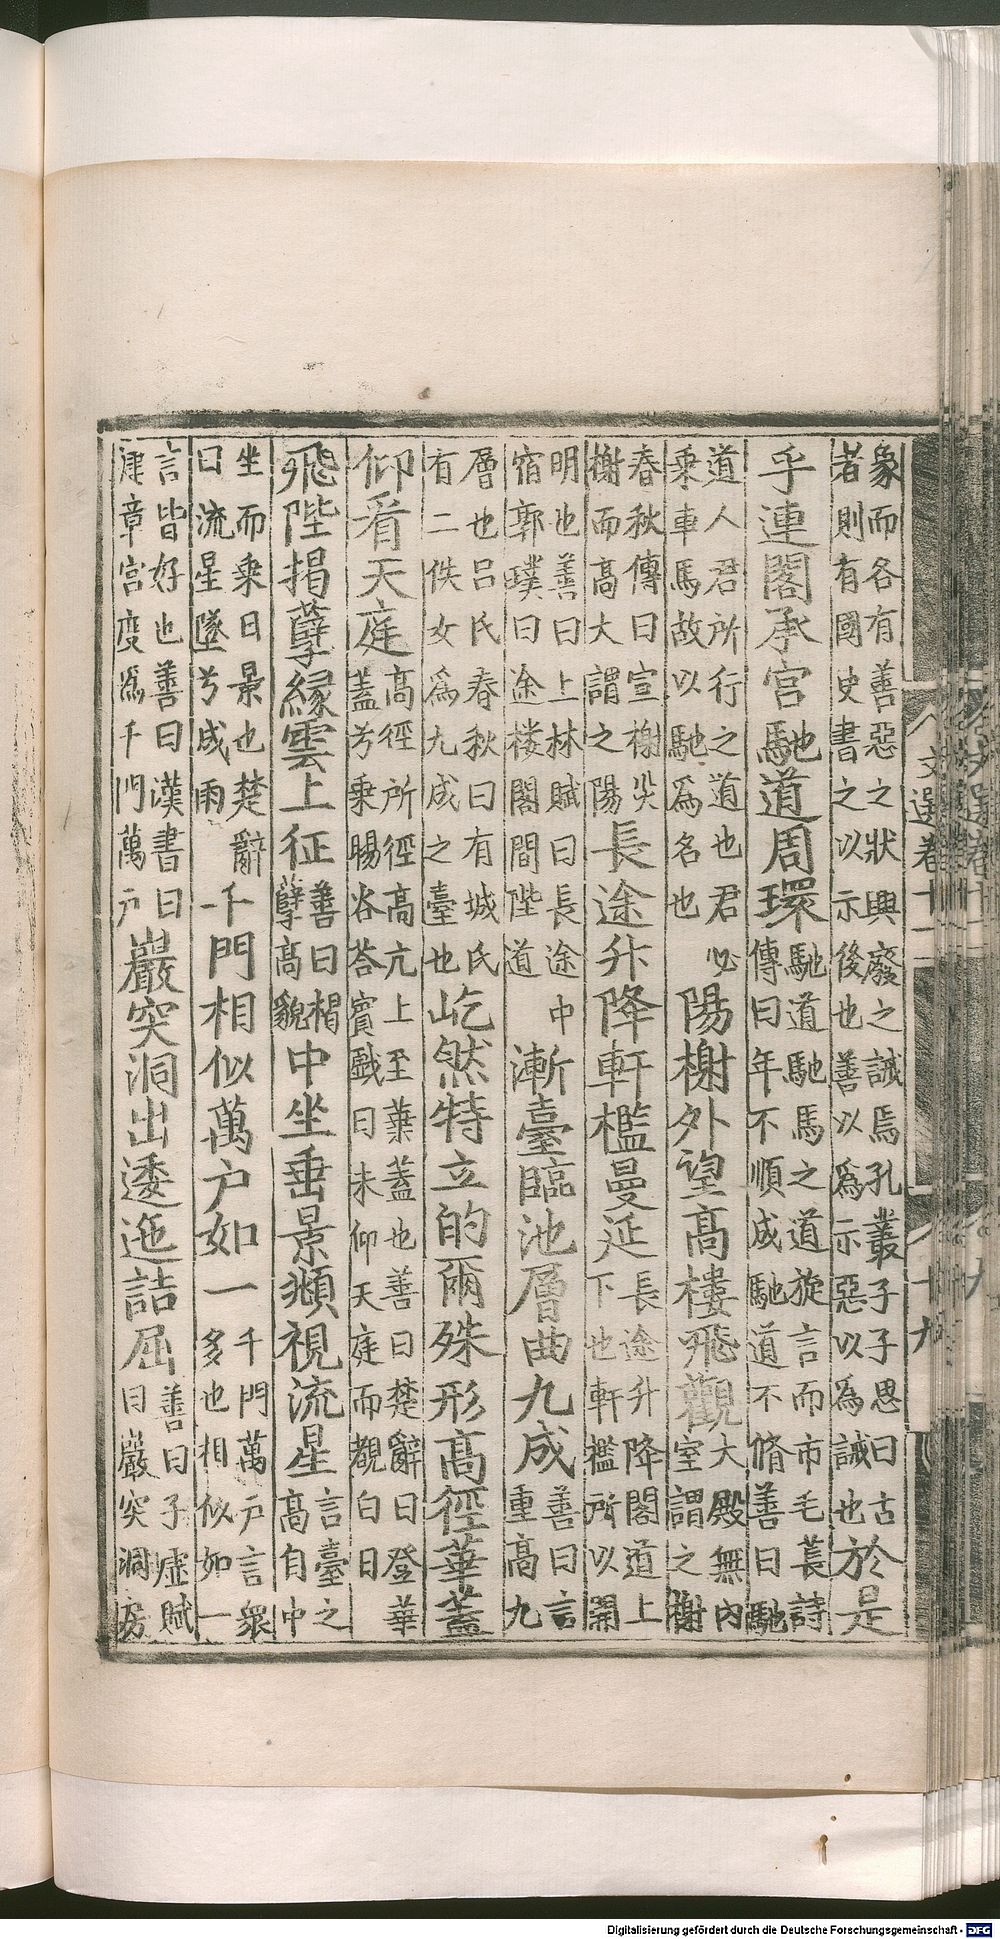 象而各有善惡之狀興廢之誡焉孔叢子子思曰古
者則有國史書之以示後也善以為示惡以為誡也
於是
乎連閣承宮馳道周環
馳道馳馬之道旋言而市毛萇詩
傳曰年不順成馳道不脩善曰馳
道人君所行之道也君必
乗車馬故以馳為名也
陽榭外望高樓飛觀
大殿無內
室謂之榭
春秋傳曰宣榭災
榭而高大謂之陽
長途升降軒檻曼延
長途升降閣道上
下也軒檻所以開
明也善曰上林賦曰長途中
宿郭璞曰途楼閣間陛道
漸臺臨池層曲九成
善曰言
重高九
層也呂氏春秋曰有娀氏
有二佚女為九成之臺也
屹然特立的爾殊形高徑華蓋
仰看天庭
高徑所徑高亢上至華蓋也善曰楚辭曰登華
蓋兮乗暘谷荅賓戲曰未仰天庭而覩白日
飛陛揭孽緣雲上征
善曰楬
孽高貌
中坐垂景頫視流星
言臺之
高自中
坐而乗日景也楚辭
曰流星墜兮成雨
千門相似萬戶如一
千門萬戶言衆
多也相似如一
言皆好也善曰漢書曰
津章宮度為千門萬戶
巖突洞出逶迤詰屈
善曰子虛賦
曰巖突洞房
文選卷十一
十九
Digitalisierung gefördert durch die Deutsche Forschungsgemeinschaft - DFG